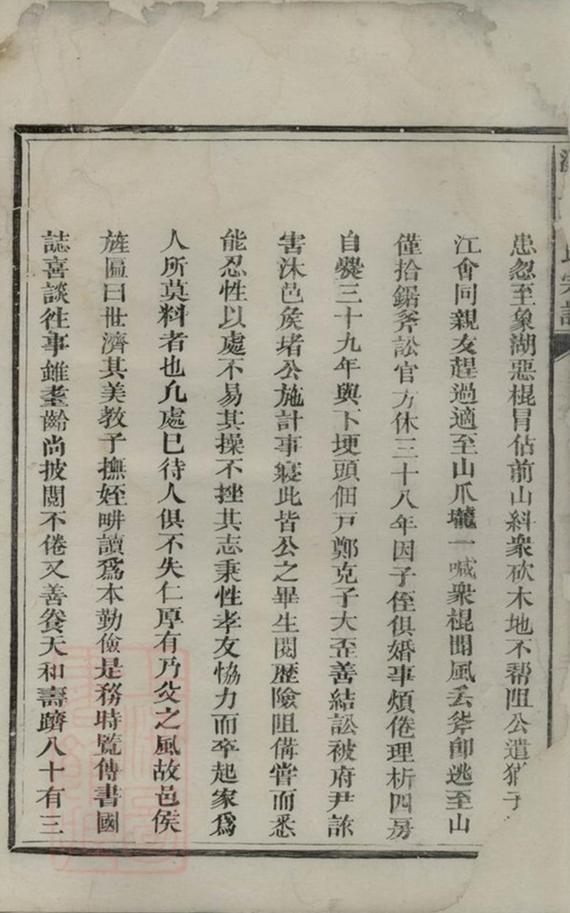 氏宗譜
患忽至象湖惡棍冒佔前山糾衆砍木地不帮阻公遣猶子
江會同親友趕過適至山爪壠一喊衆棍聞風丢斧卸逃至山
僅拾鋸斧訟官方休三十八年因子侄俱婚事煩倦理析四房
自㸑三十九年與下埂頭佃戸鄭克子大歪善結訟被府尹詠
害沐邑矦堵公施計事寢此皆公之畢生閱歷險阻備嘗而悉
能忍性以處不易其操不挫其志秉性孝友恊力而卒起家爲
人所莫料者也凢處巳待人俱不失仁厚有乃父之風故邑侯
旌匾曰世濟其美教子撫姪畊讀爲本勤儉是務時覽傳書國
誌喜談徃事雖耄齡尚披閱不倦又善養天和壽躋八十有三